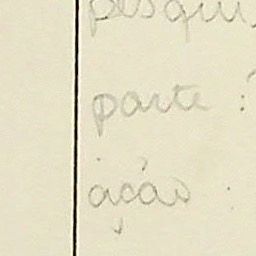 pesqui
parte :
ação :